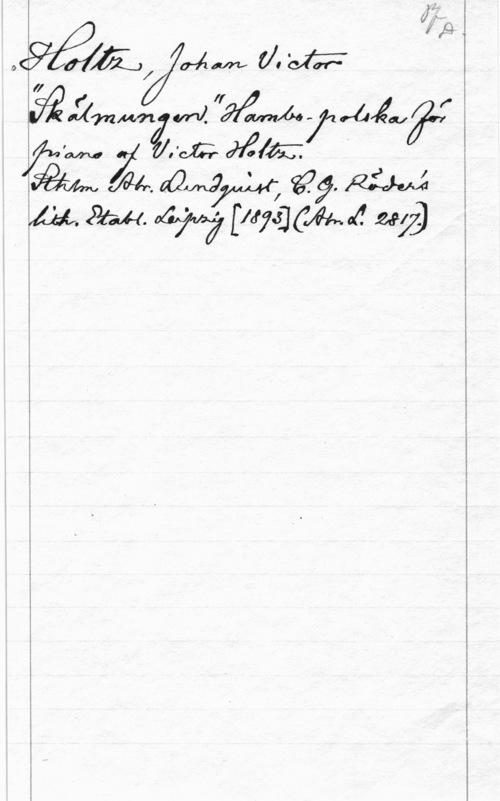 Holtz, Johan Victor
"Skålmungen." Hambo-polska för
piano af Victor Holtz.
Sthlm Abr. Lundquist, C. G. Röder's
lith. Etabl. Leipzig [1893] (Abr. L. 2817.)